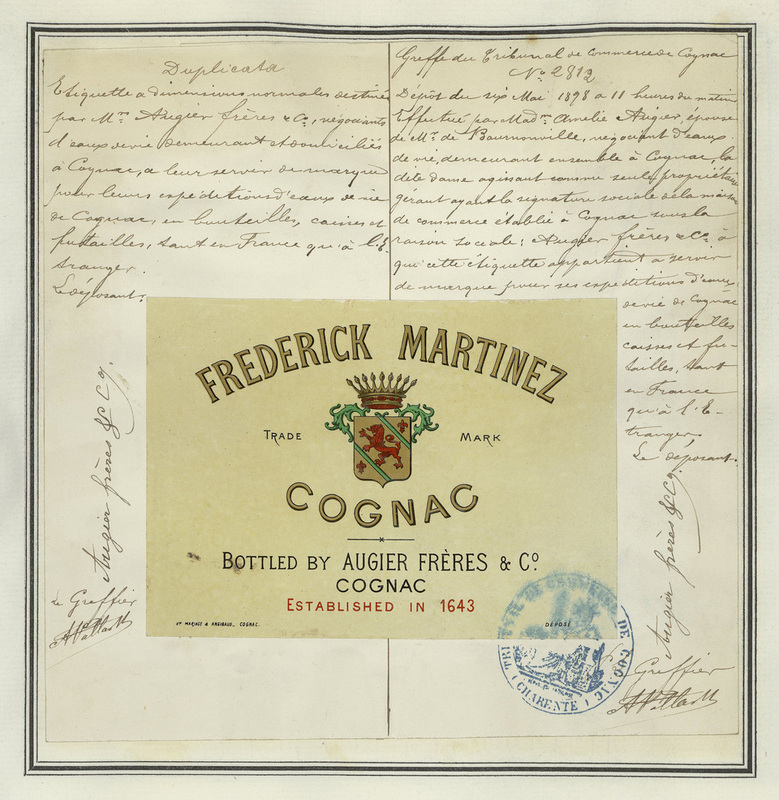 Duplicata
Etiquette à dimensions normales destinée
par Mrs Augier frères & Co, négociants
d'eaux de vie demeurant et domiciliés
à Cognac, a leur servir de marque
pour leurs expéditions d'eaux de vie
de Cognac, en bouteilles, caisses et
futailles, tant en France qu'à l'E-
tranger.
Le déposant,
Augier frères & Co
Le Greffier
Greffe du Tribunal de Commerce de Cognac
No 2812
Dépôt du six Mai 1898 a 11 heures du matin
Effectué par Madme Amélie Augier, épouse
de Mr de Bournonville, négociant d'eaux
de vie, demeurant ensemble à Cognac, la
dite dame agissant comme seule propriétaire
gérant ayant la signature sociale de la maison
de commerce établie à Cognac sous la
raison sociale: Augier frères & Co à
qui cette étiquette appartient a servir
de marque pour ses expéditions d'eaux
de vie de Cognac
en bouteilles
caisses et fu-
tailles, tant
en France
qu'à l'E-
tranger,
Le déposant.
Augier frères & Co
Le Greffier
FREDERICK MARTINEZ
TRADE MARK
COGNAC
BOTTLED BY AUGIER FRÈRES & Co
COGNAC
ESTABLISHED IN 1643
DÉPOSÉ
TRIBUNAL DE COMMERCE DE COGNAC
(CHARENTE)